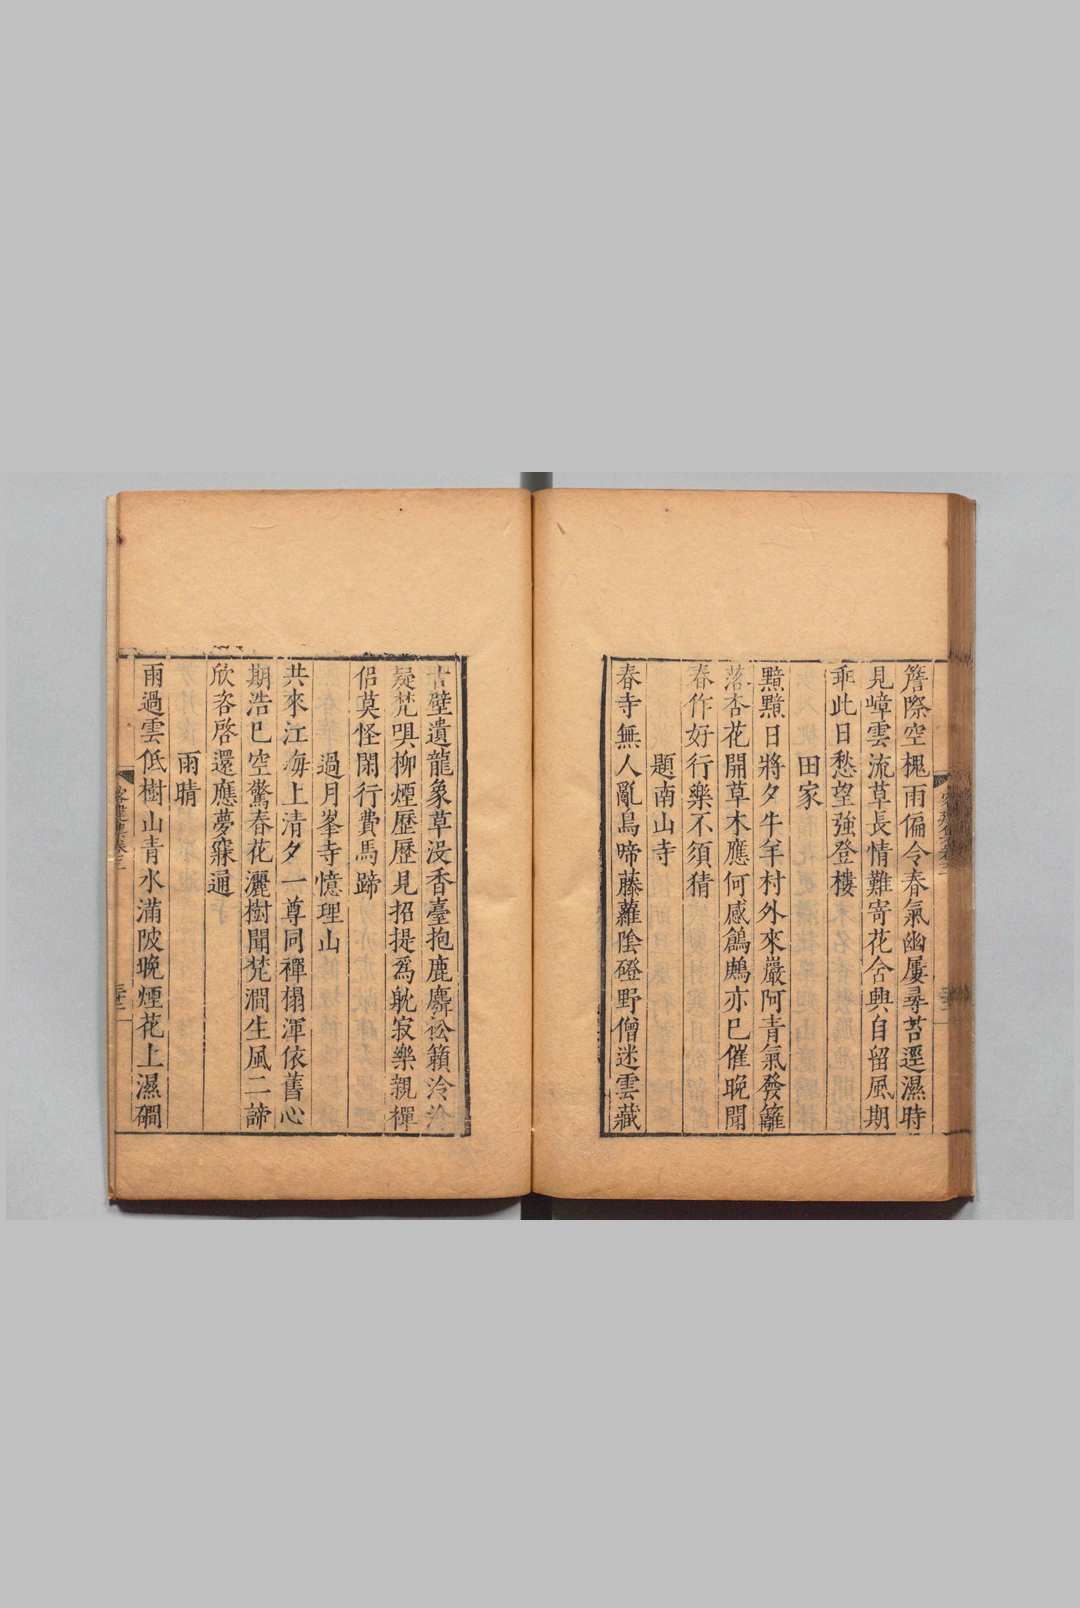 簷際空槐雨偏令春氣幽屢尋苔逕濕時
見嶂雲流草長情難寄花含興自留風期
乖此日愁望強登樓
田家
黯黯日將夕牛羊村外來巖阿青氣發籬
落杏花開草木應何感鶬鷓亦已催晚聞
春作好行樂不須猜
題南山寺
春寺無人亂鳥啼藤蘿陰磴野僧迷雲藏
古壁遺龍象草没香臺抱鹿麛松籟泠泠
疑梵唄柳煙歷歷見招提爲躭寂樂親禪
侶莫怪閑行費馬蹄
過月峯寺憶理山
共來江海上清夕一尊同禪榻渾依舊心
期浩已空驚春花灑樹聞梵澗生風二諦
欣咨啓還應夢寐通
雨晴
雨過雲低樹山青水滿陂晚煙花上濕磵